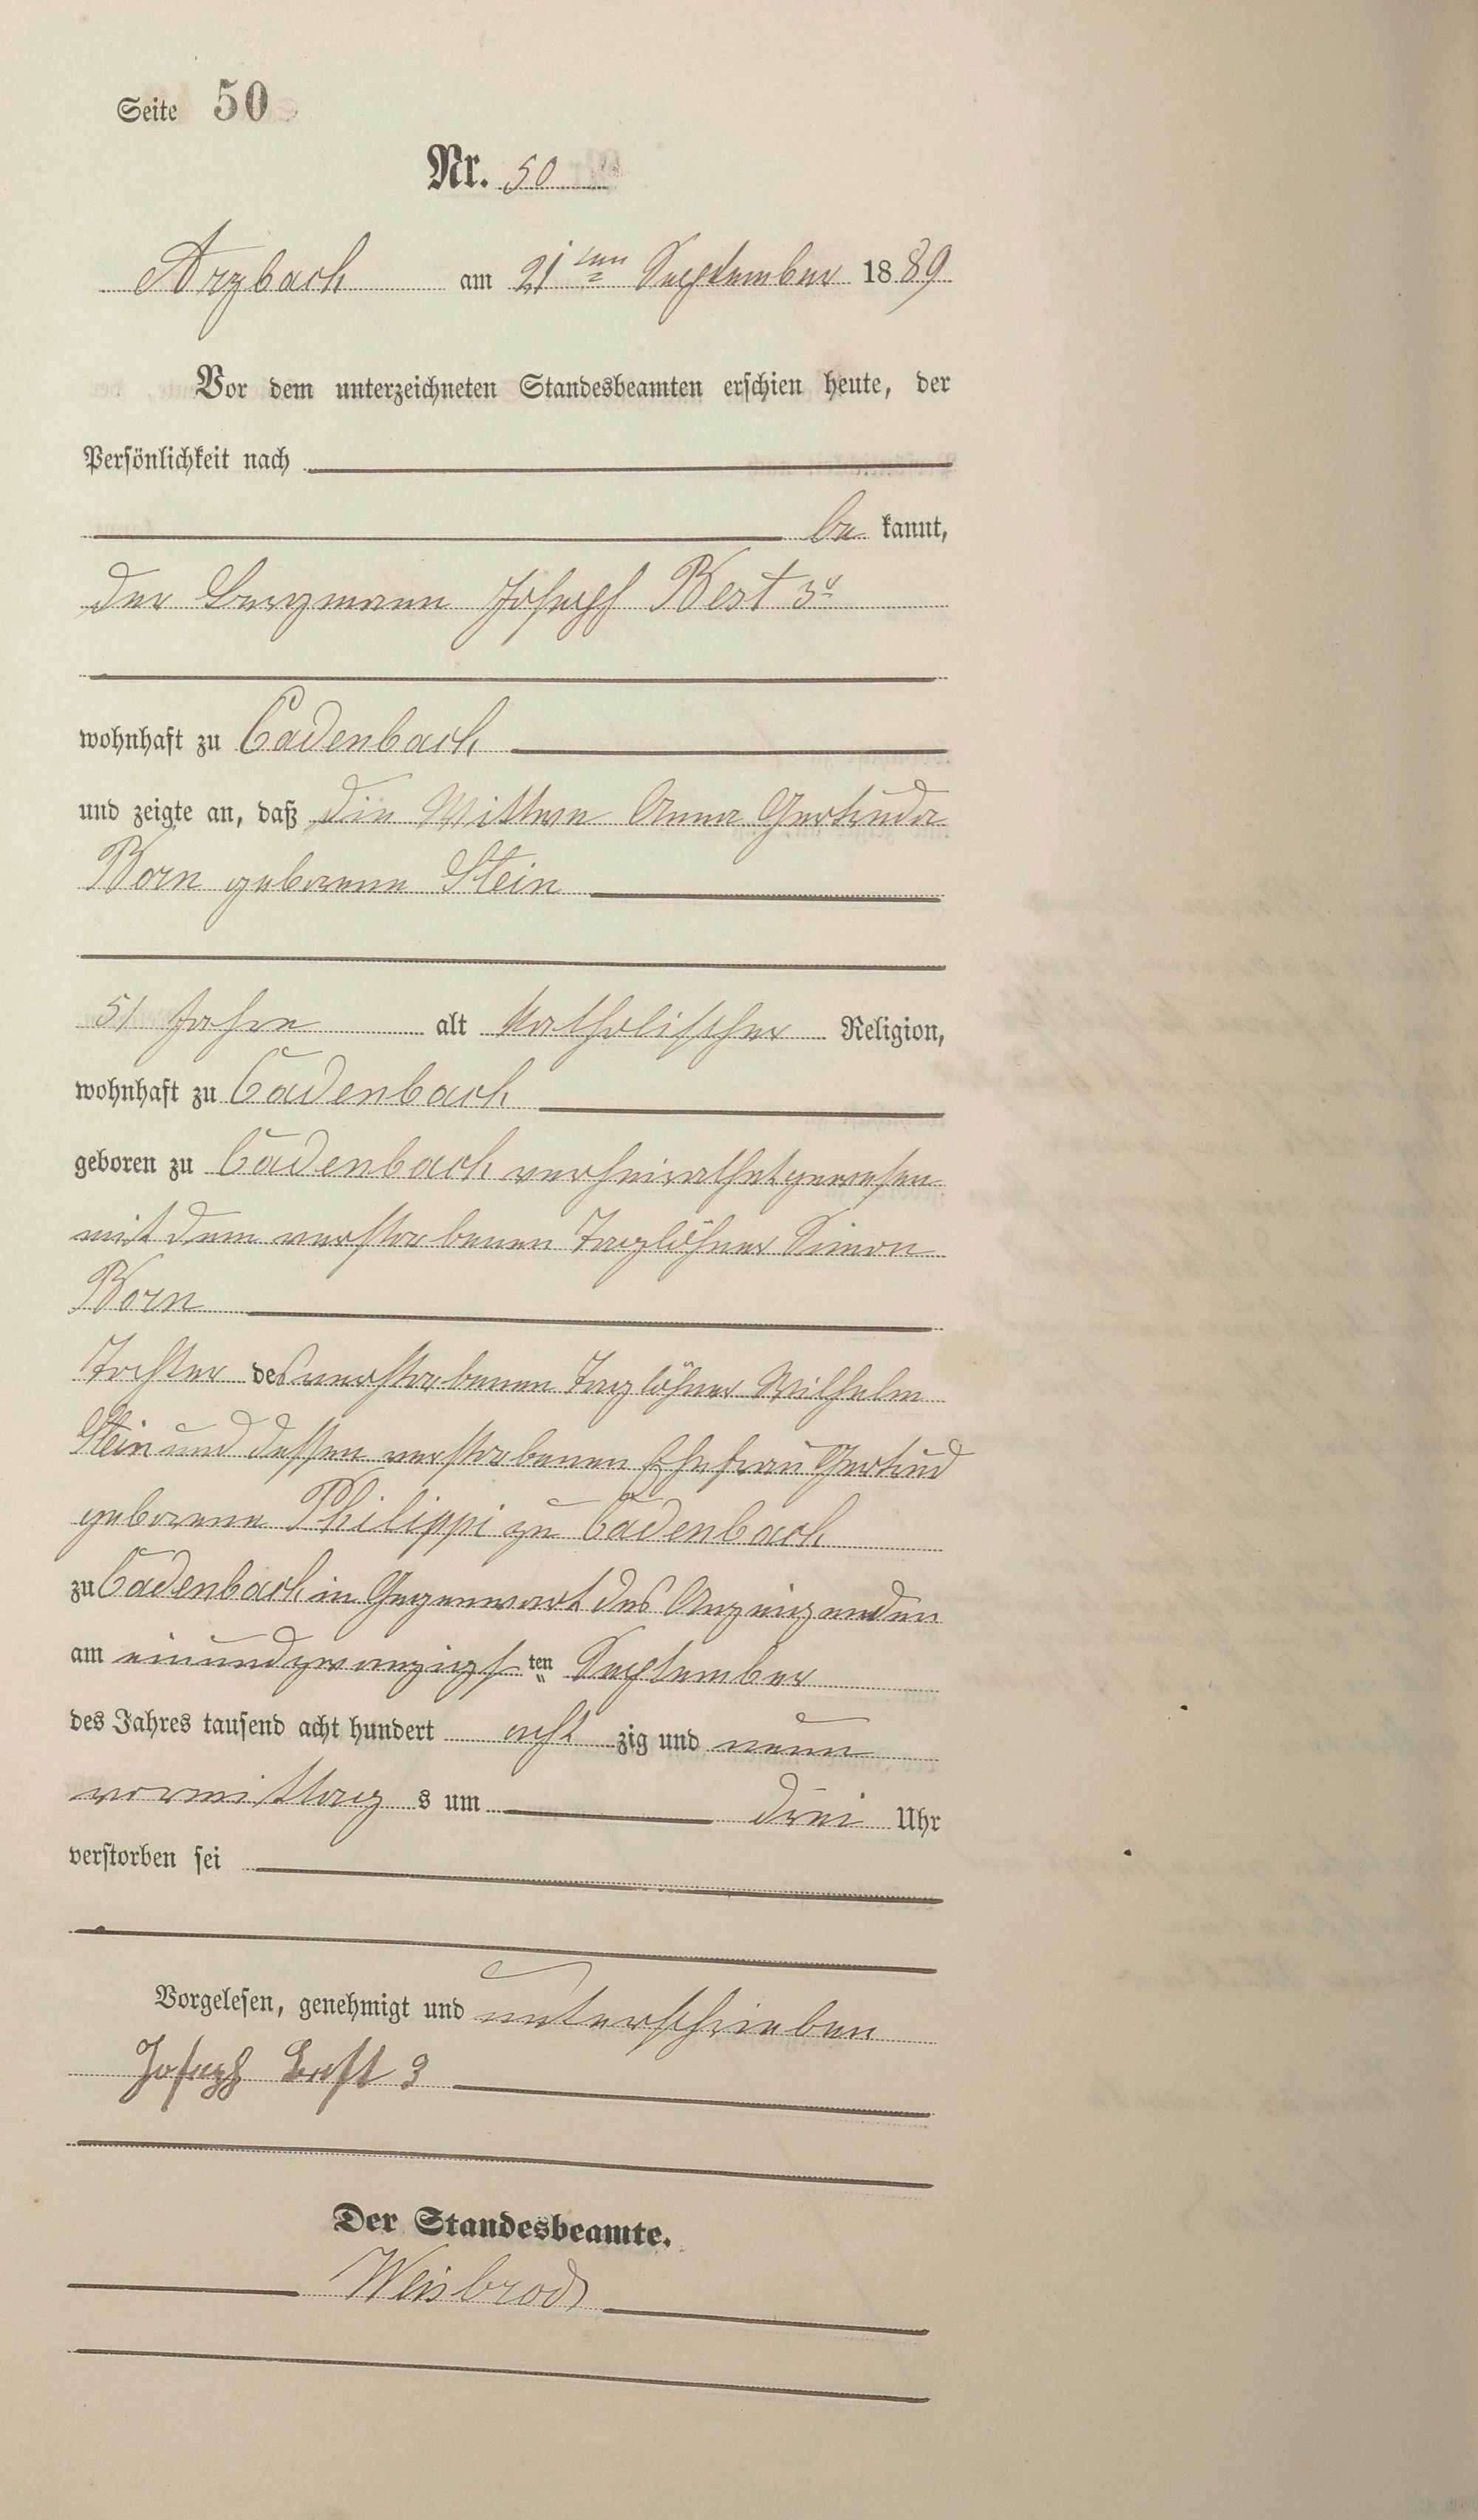 Seite 50
Nr. 50
Arzbach am 21ten September 1889
Vor dem unterzeichneten Standesbeamten erschien heute, der
Persönlichkeit nach
be kannt,
der Bergmann Joseph Best 3r
wohnhaft zu Cadenbach
und zeigte an, daß die Wittwe Anna Gertruda
Born geborene Stein
51 Jahre alt katholischer Religion,
wohnhaft zu Cadenbach
geboren zu Cadenbach verheirathet gewesen
mit dem verstorbenen Taglöhner Simon
Born
Tochter des verstorbenen Taglöhner Wilhelm
Stein und dessen verstorbenen Ehefrau Gertrud
geborene Philippi zu Cadenbach
zu Cadenbach in Gegenwart des Anzeigenden
am einundzwanzigsten September
des Jahres tausend acht hundert acht zig und neun
vormittag s um drei Uhr
verstorben sei
Vorgelesen, genehmigt und unterschrieben
Joseph Best 3
Der Standesbeamte.
Weisbrod